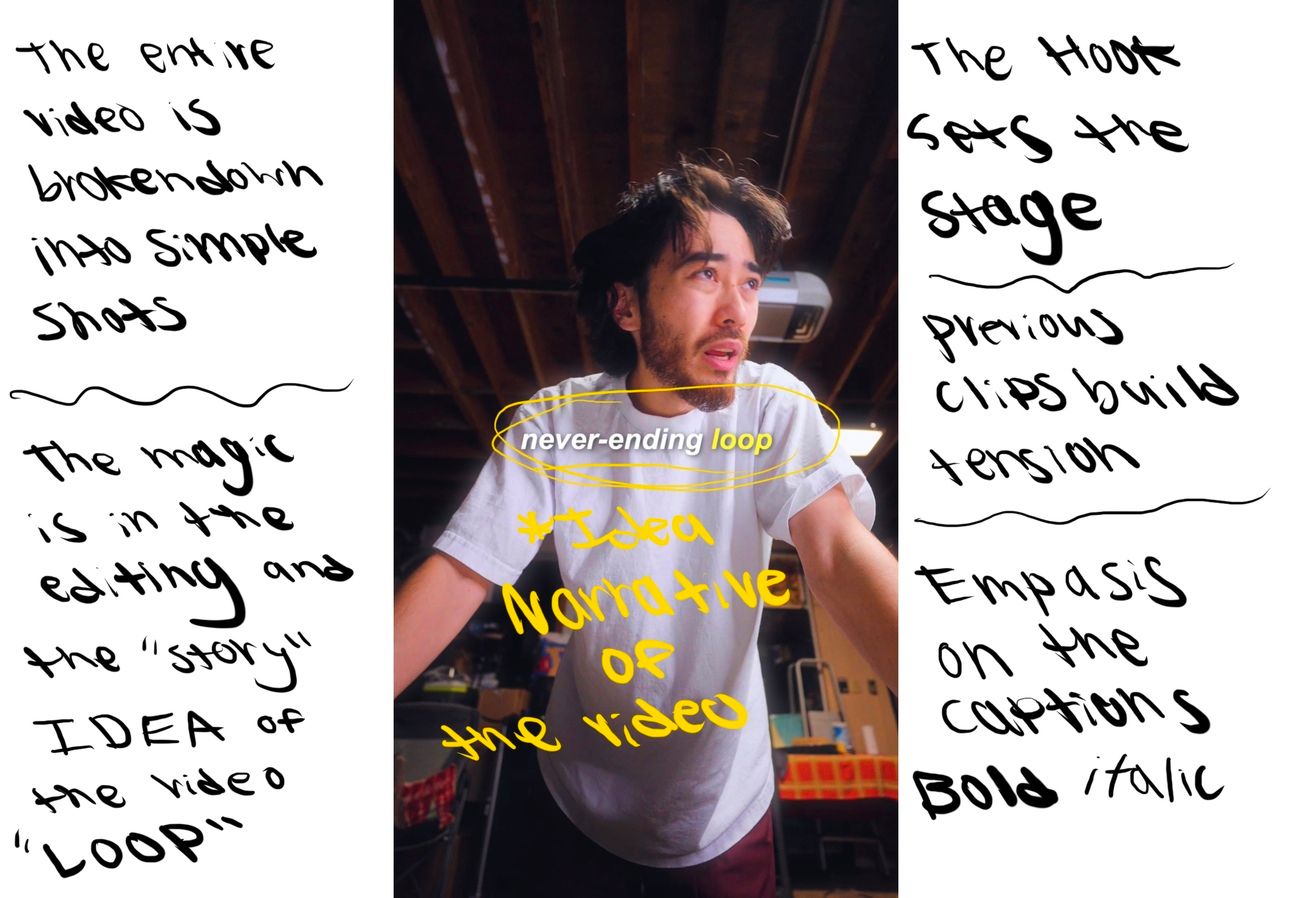 The entire
video is
brokendown
into simple
shots
The magic
is in the
editing and
the "story"
IDEA of
the video
"LOOP"
never-ending loop
*Idea
Narrative
of
the video
The Hook
Sets the
Stage
previous
clips build
tension
Empasis
on the
captions
Bold italic